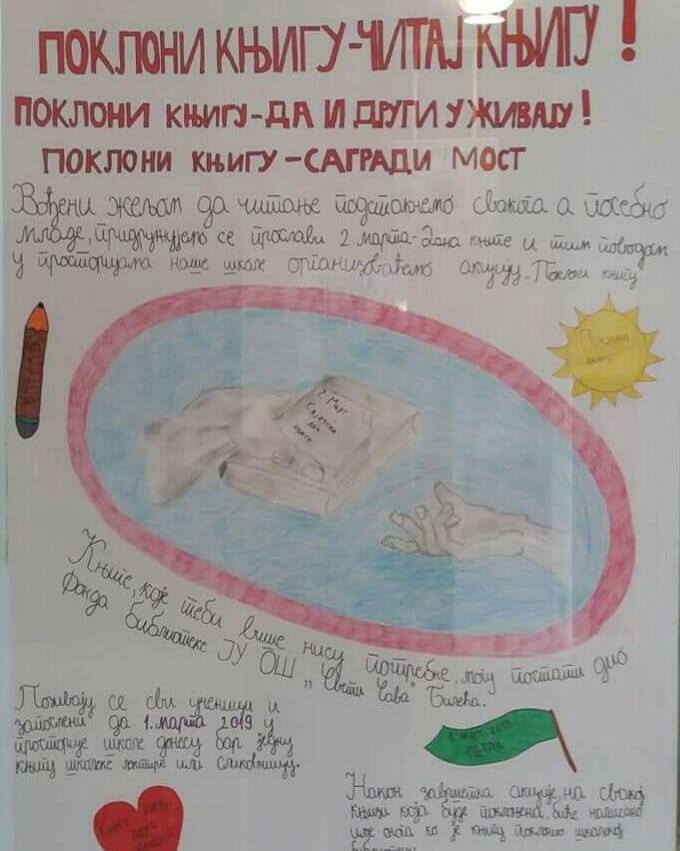 ПОКЛОНИ КЊИГУ-ЧИТАЈ КЊИГУ!
ПОКЛОНИ КЊИГУ-ДА И ДРУГИ УЖИВАЈУ!
ПОКЛОНИ КЊИГУ-САГРАДИ МОСТ
Вођени жељом да читање подстакнемо свакога а посебно
младе, придружујемо се прослави 2. марта-Дана књиге и тим поводом
у просторијама наше школе организоваћемо акцију. Поклони књигу
Поклони
књигу
2. Март
Свјетски
дан
књиге
Књиге, које теби више нису потребне, могу постати дио
Фонда библиотеке ЈУ ОШ "Свети Сава" Билећа.
Позивају се сви ученици и
запослени да 1. марта 2019 у
просторије школе донесу бар једну
књигу школске лектире или сликовницу.
1. март 2019
ПЕТАК
Након завршетка акције, на свакој
књизи која буде поклоњена, биће написано
име онога ко је књигу поклонио школској
библиотеци